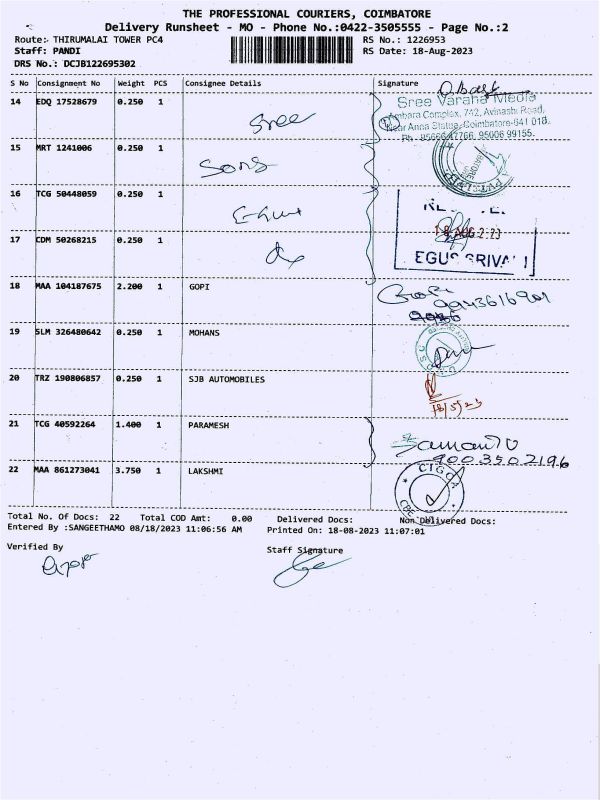 THE PROFESSIONAL COURIERS, COIMBATORE
Delivery Runsheet - MO - Phone No.:0422-3505555 - Page No.:2
Route:- THIRUMALAI TOWER PC4 RS No.: 1226953
Staff: PANDI RS Date: 18-Aug-2023
DRS No.: DCJB122695302
S No Consignment No Weight PCS Consignee Details Signature
14 EDQ 17528679 0.250 1 Sree
Sree Varaha Media
Ambara Complex, 742, Avinashi Road,
Near Anna Statue, Coimbatore-641 018.
Ph : 95666 47766, 95006 99155.
15 MRT 1241006 0.250 1 Sons
16 TCG 50448059 0.250 1
18 AUG 2023
17 CDM 50268215 0.250 1
18 MAA 104187675 2.200 1 GOPI Gopi
9943616901
19 SLM 326480642 0.250 1 MOHANS
20 TRZ 190806857 0.250 1 SJB AUTOMOBILES
21 TCG 40592264 1.400 1 PARAMESH
9003502196
22 MAA 861273041 3.750 1 LAKSHMI
Total No. Of Docs: 22 Total COD Amt: 0.00 Delivered Docs: Non Delivered Docs:
Entered By :SANGEETHAMO 08/18/2023 11:06:56 AM Printed On: 18-08-2023 11:07:01
Verified By Staff Signature